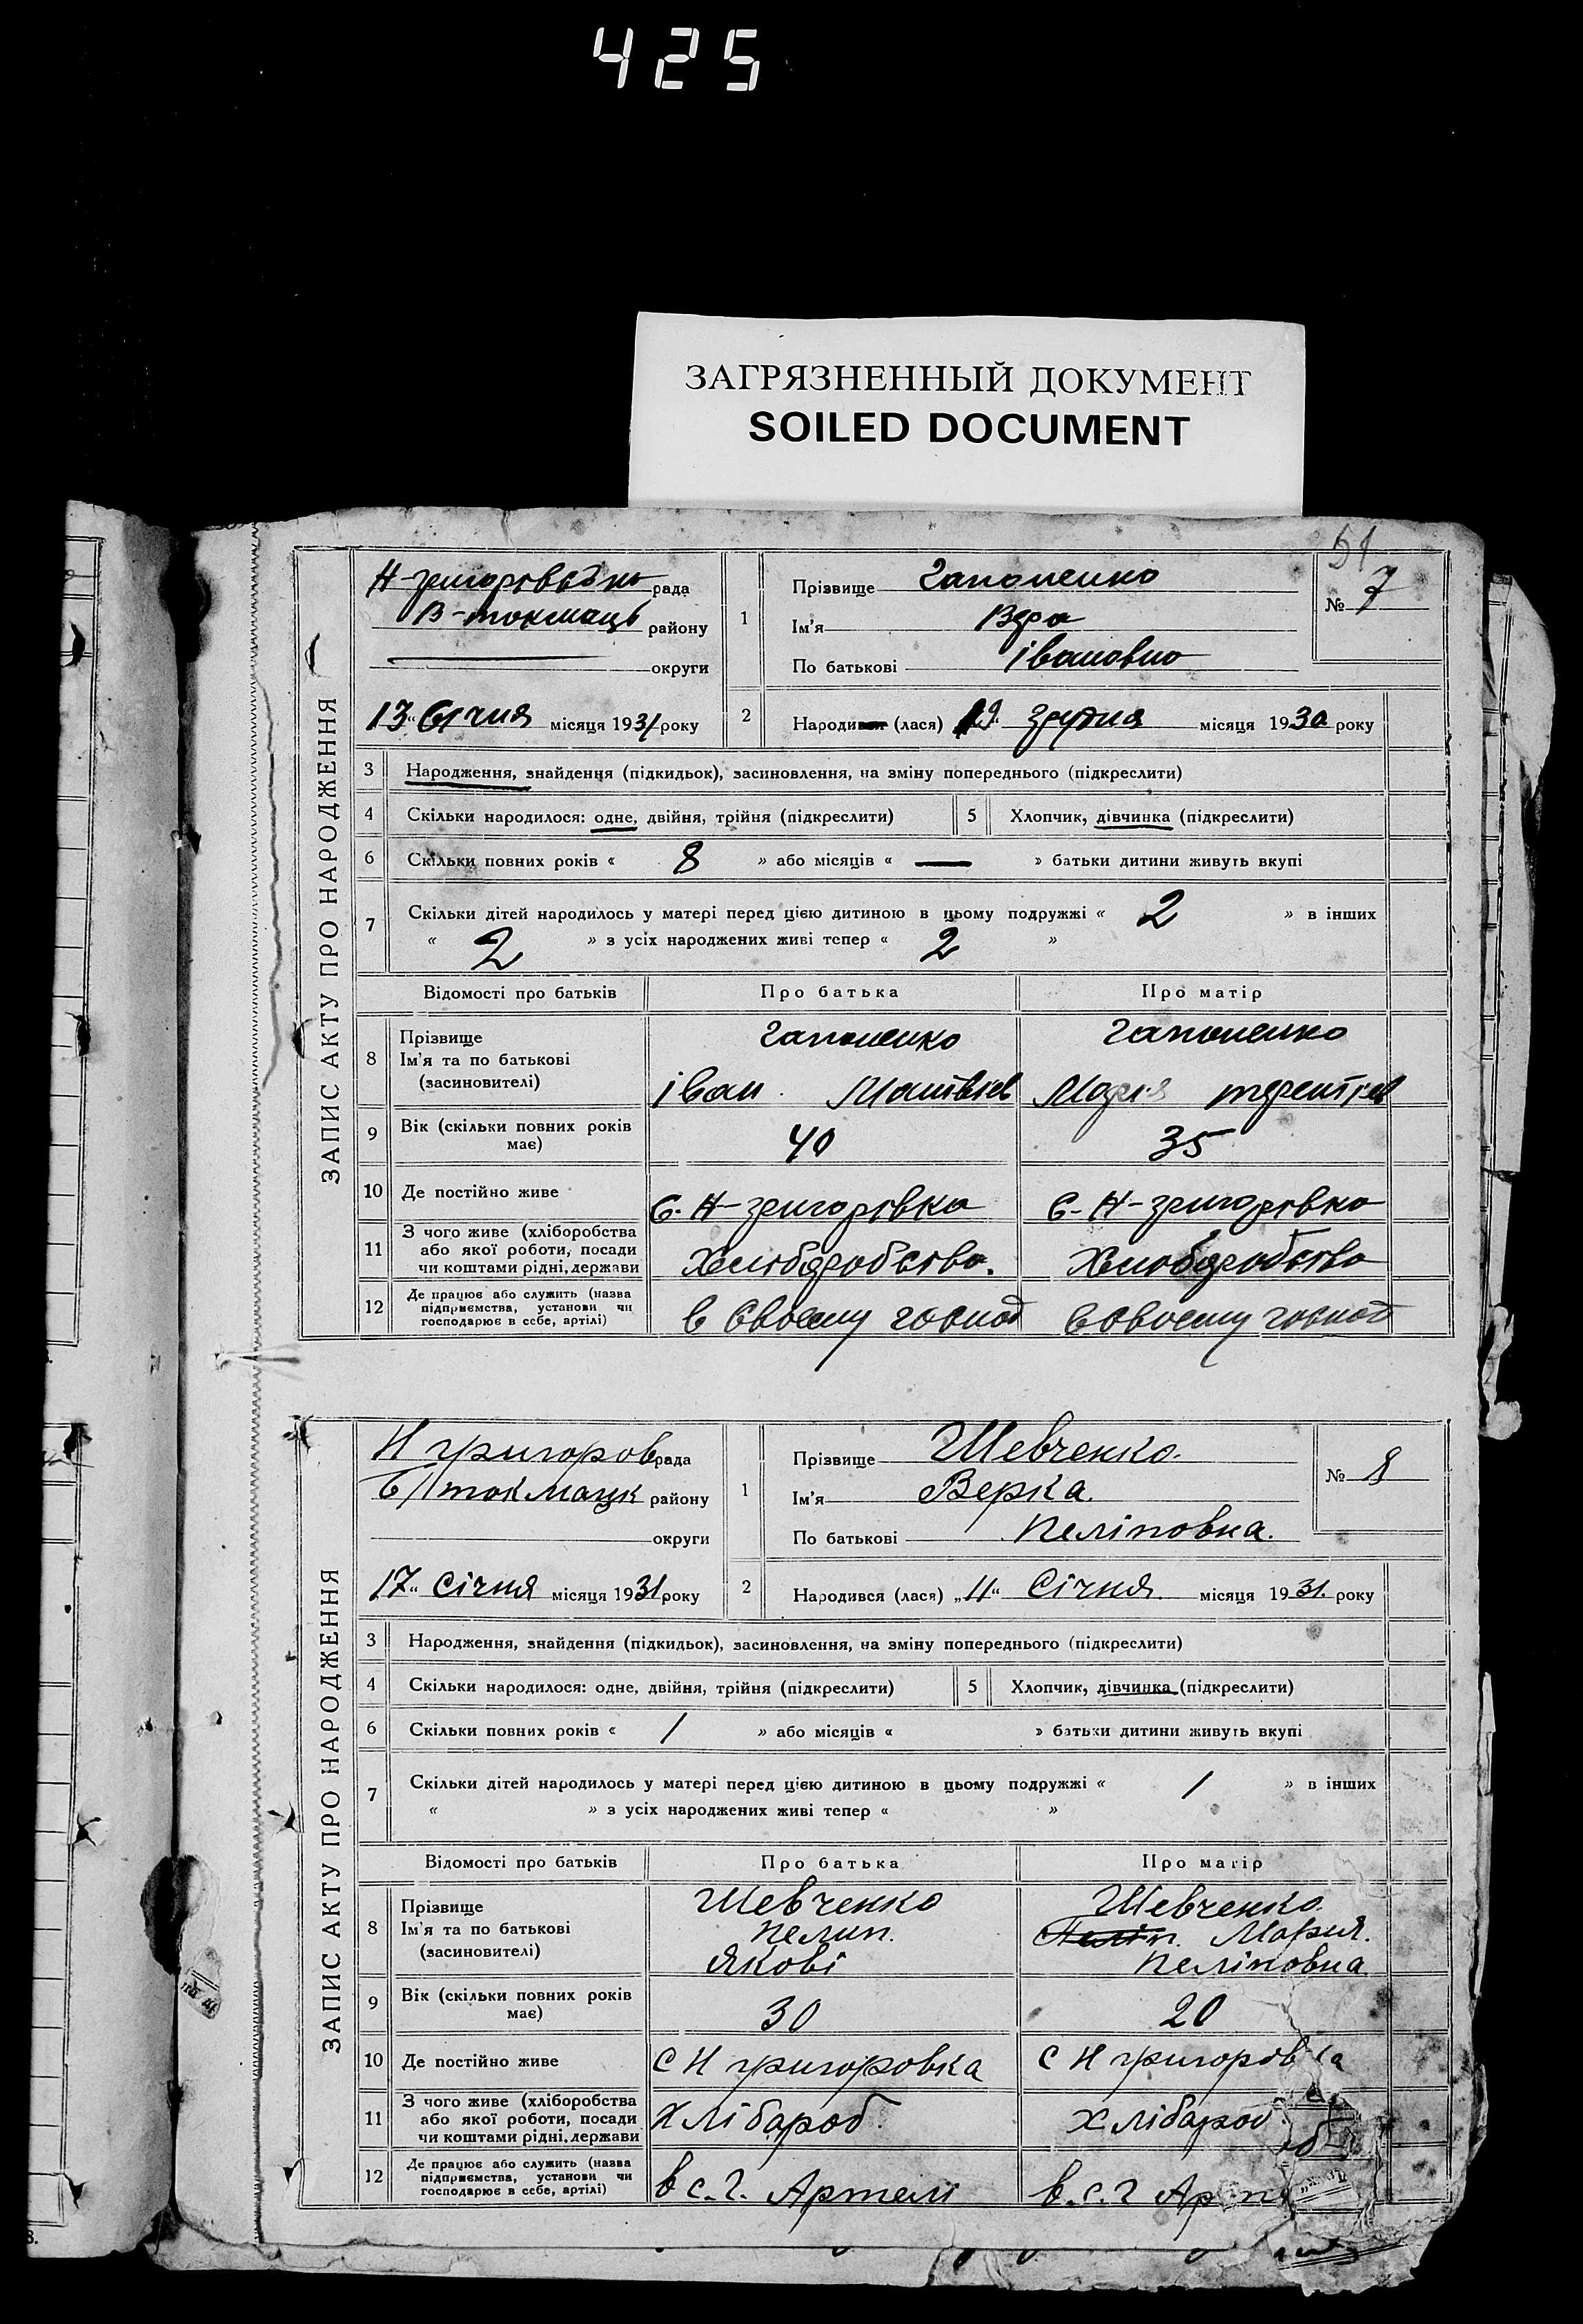 425
ЗАГРЯЗНЕННЫЙ ДОКУМЕНТ
SOILED DOCUMENT
51
ЗАПИС АКТУ ПРО НАРОДЖЕННЯ
Н-григоровсбка рада
В-токмаць району
округи
13 Січня місяця 1931 року
1 Прізвище Гапоненко
Ім'я Вера
По батькові івановна
№ 7
2 Народився (лася) 19 грудня місяця 1930 року
3 Народження, знайдення (підкидьок), засиновлення, на зміну попереднього (підкреслити)
4 Скільки народилося: одне, двійня, трійня (підкреслити) 5 Хлопчик, дівчинка (підкреслити)
6 Скільки повних років « 8 » або місяців « — » батьки дитини живуть вкупі
7 Скільки дітей народилось у матері перед цією дитиною в цьому подружжі « 2 » в інших
« 2 » з усіх народжених живі тепер « 2 »
Відомості про батьків Про батька Про матір
8 Прізвище Гапоненко Гапоненко
Ім'я та по батькові
(засиновителі) іван Матвієв Марія терентієв
9 Вік (скільки повних років має) 40 35
10 Де постійно живе С. Н-григорівка С-Н-григорівка
11 З чого живе (хліборобства
або якої роботи, посади
чи коштами рідні, держави
12 Де працює або служить (назва
підприємства, установи чи
господарює в себе, артілі) в Своєму господ в Своєму господ
ЗАПИС АКТУ ПРО НАРОДЖЕННЯ
Н григоров рада
Б/токмацк району
округи
17 Січня місяця 1931 року
1 Прізвище Шевченко.
Ім'я Верка.
По батькові Пеліповна.
№ 8
2 Народився (лася) „11“ Січня місяця 1931. року
3 Народження, знайдення (підкидьок), засиновлення, на зміну попереднього (підкреслити)
4 Скільки народилося: одне, двійня, трійня (підкреслити) 5 Хлопчик, дівчинка (підкреслити)
6 Скільки повних років « 1 » або місяців « » батьки дитини живуть вкупі
7 Скільки дітей народилось у матері перед цією дитиною в цьому подружжі « 1 » в інших
« » з усіх народжених живі тепер « »
Відомості про батьків Про батька Про матір
8 Прізвище Шевченко Шевченко.
Ім'я та по батькові Пелип. Пеліп. Мария.
(засиновителі) Якові Пеліповна
9 Вік (скільки повних років має) 30 20
10 Де постійно живе С Н григоровка С Н григорівка
11 З чого живе (хліборобства
або якої роботи, посади
чи коштами рідні, держави Хлібароб. Хлібароб.
12 Де працює або служить (назва
підприємства, установи чи
господарює в себе, артілі) в с.г. Артелі в.с.г